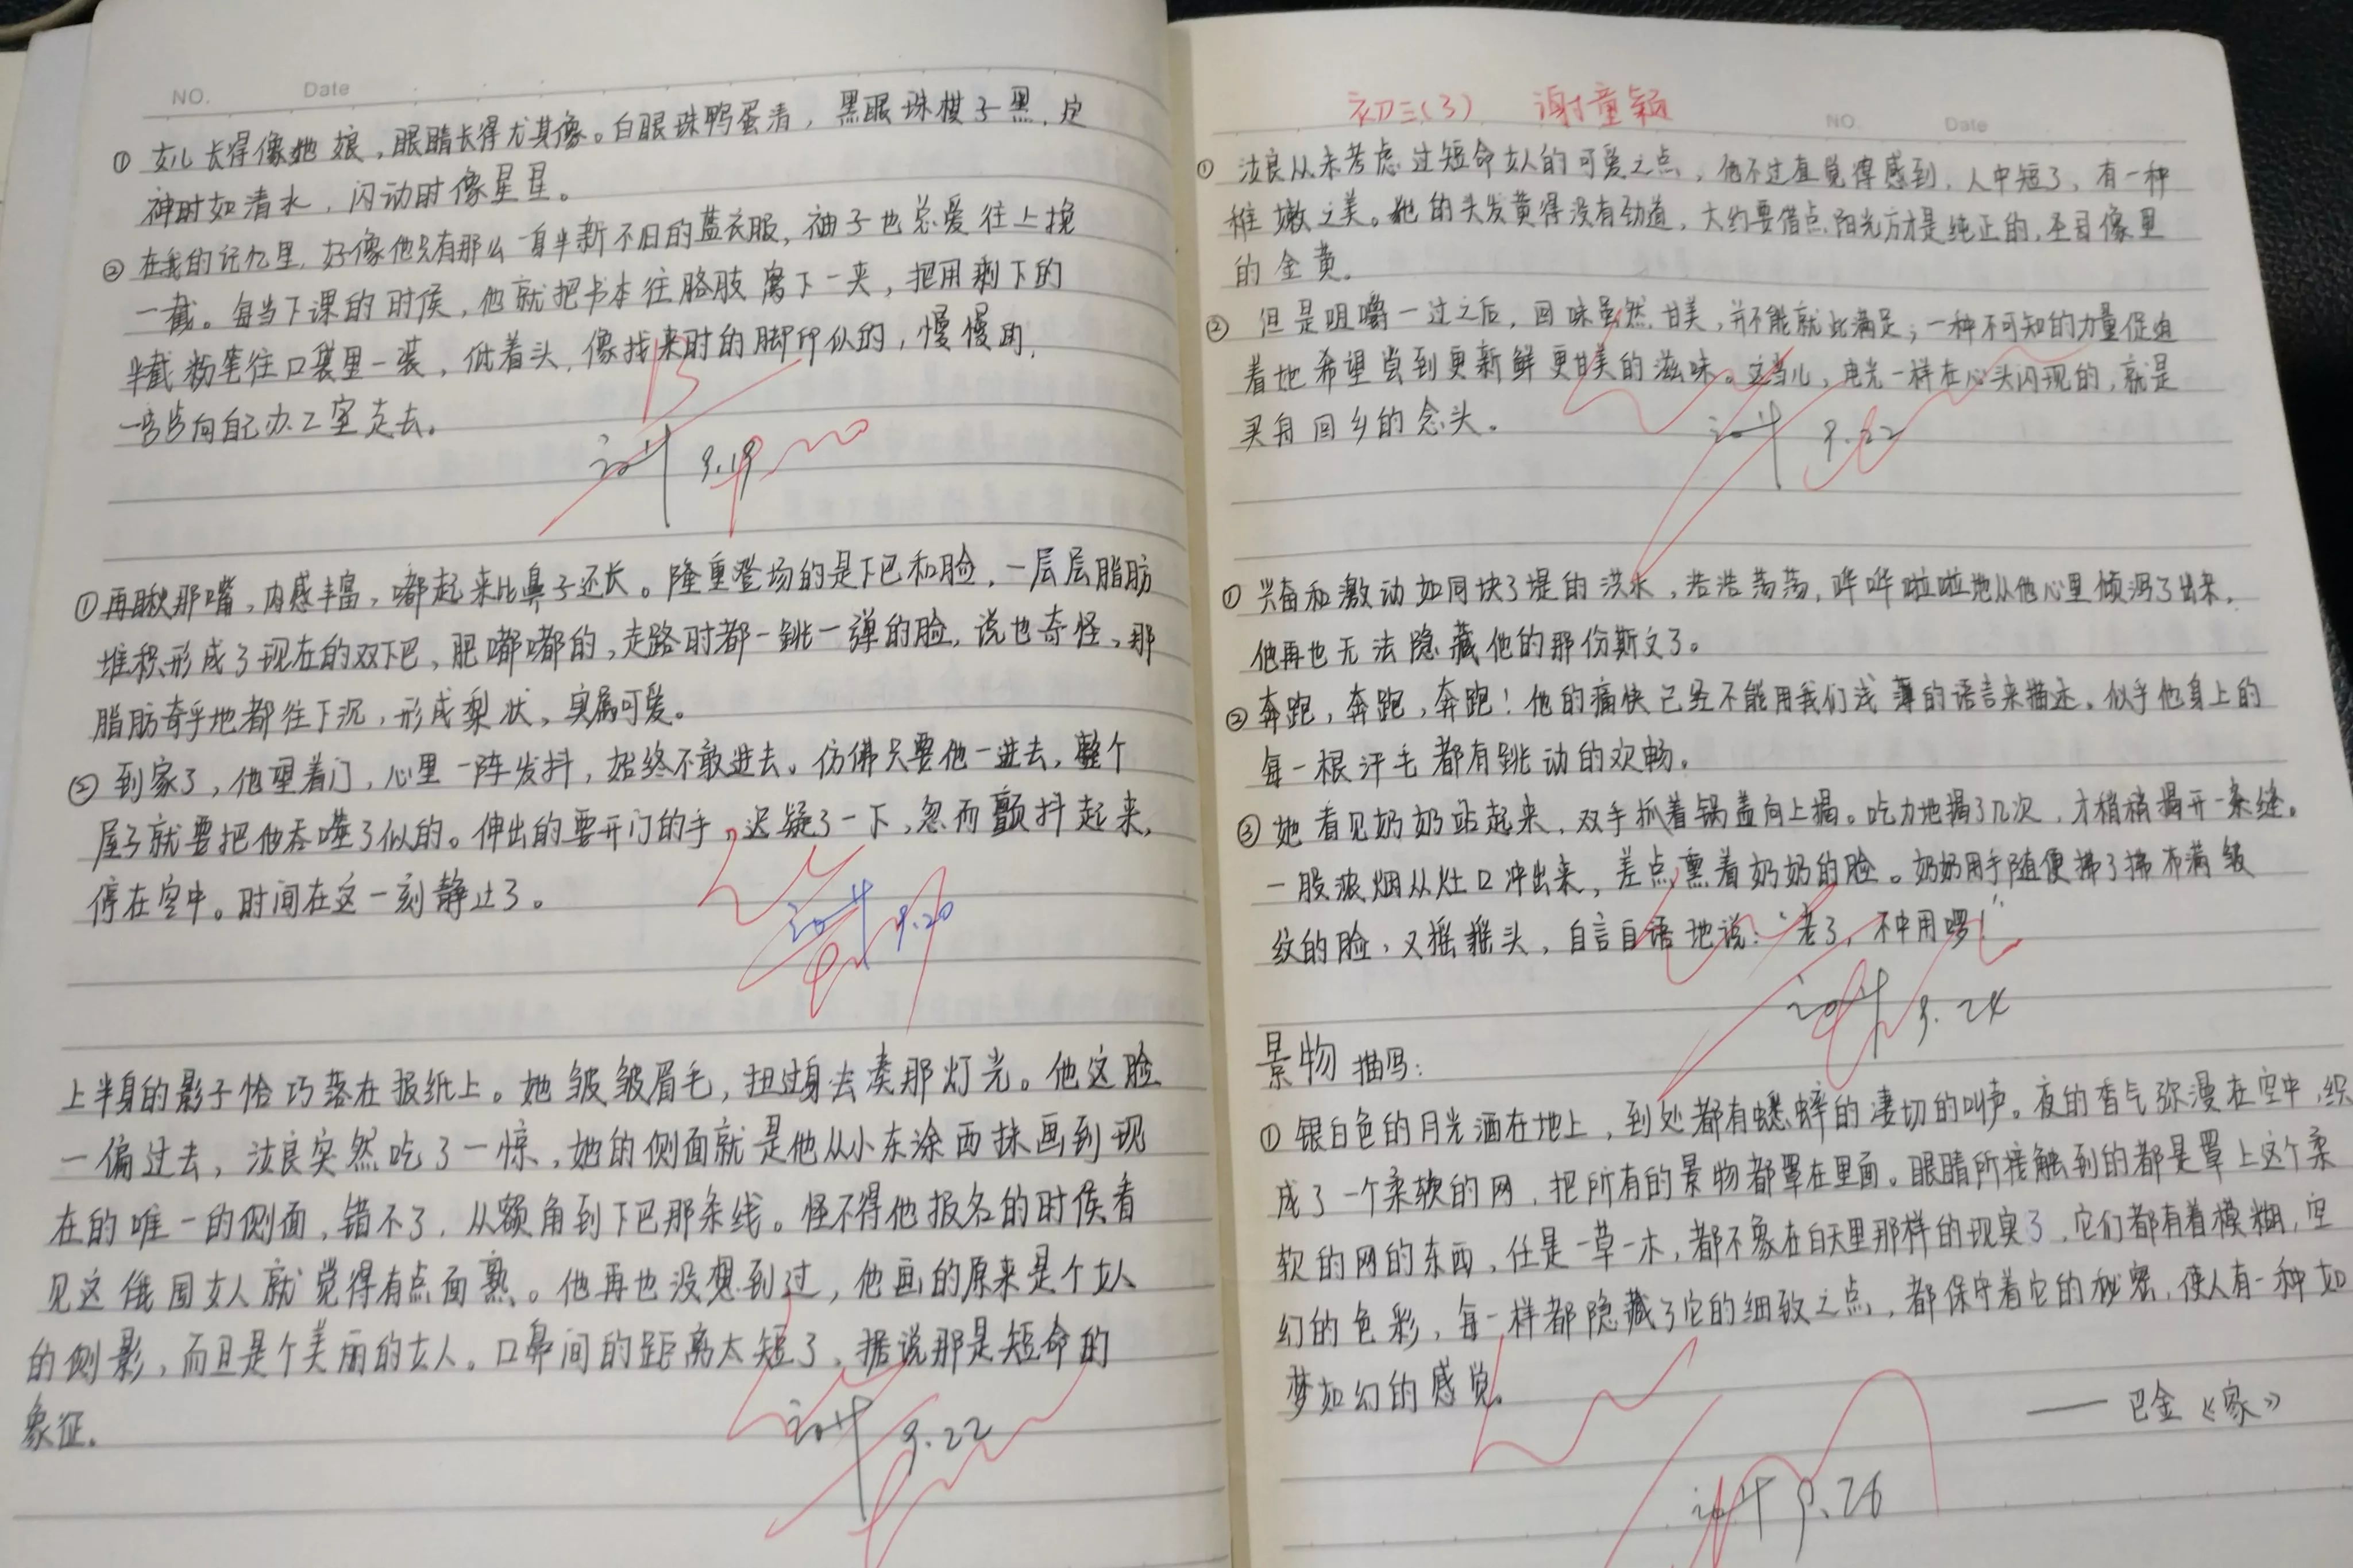 NO.
Date
① 女儿长得像她娘，眼睛长得尤其像。白眼珠鸭蛋清，黑眼珠棋子黑，定
神时如清水，闪动时像星星。
② 在我的记忆里，好像他只有那么一身半新不旧的蓝衣服，袖子也总爱往上挽
一截。每当下课的时侯，他就把书本往胳肢窝下一夹，把用剩下的
半截粉笔往口袋里一装，低着头，像找来时的脚印似的，慢慢的，
一步步向自己办工室走去。
9.19
①再瞅那嘴，肉感丰富，嘟起来比鼻子还长。隆重登场的是下巴和脸，一层层脂肪
堆积形成了现在的双下巴，肥嘟嘟的，走路时都一跳一弹的脸，说也奇怪，那
脂肪奇乎地都往下沉，形成梨状，实属可爱。
② 到家了，他望着门，心里一阵发抖，始终不敢进去。仿佛只要他一进去，整个
屋子就要把他吞噬了似的。伸出的要开门的手，迟疑了一下，忽而颤抖起来，
停在空中。时间在这一刻静止了。
9.20
上半身的影子恰巧落在报纸上。她皱皱眉毛，扭过身去凑那灯光。他这脸
一偏过去，汝良突然吃了一惊，她的侧面就是他从小东涂西抹画到现
在的唯一的侧面，错不了，从额角到下巴那条线。怪不得他报名的时侯看
见这俄国女人就觉得有点面熟。他再也没想到过，他画的原来是个女人
的侧影，而且是个美丽的女人。口鼻间的距离太短了，据说那是短命的
象征。
9.22
初三(3) 谢童颖
NO.
Date
① 汝良从未考虑过短命女人的可爱之点，他不过直觉得感到，人中短了，有一种
稚嫩之美。她的头发黄得没有劲道，大约要借点阳光方才是纯正的，圣母像里
的金黄。
② 但是咀嚼一过之后，回味虽然甘美，并不能就此满足；一种不可知的力量促迫
着他希望尝到更新鲜更甘美的滋味。这当儿，电光一样在心头闪现的，就是
买舟回乡的念头。
9.22
① 兴奋和激动如同块了堤的洪水，浩浩荡荡，哗哗啦啦地从他心里倾泻了出来，
他再也无法隐藏他的那份斯文了。
② 奔跑，奔跑，奔跑！他的痛快已经不能用我们浅薄的语言来描述。似乎他身上的
每一根汗毛都有跳动的欢畅。
③ 她看见奶奶站起来，双手抓着锅盖向上揭。吃力地揭了几次，才稍稍揭开一条缝。
一股浓烟从灶口冲出来，差点熏着奶奶的脸。奶奶用手随便拂了拂布满皱
纹的脸，又摇摇头，自言自语地说：“老了，不中用啰！”
9.24
景物描写：
① 银白色的月光洒在地上，到处都有蟋蟀的凄切的叫声。夜的香气弥漫在空中，织
成了一个柔软的网，把所有的景物都罩在里面。眼睛所接触到的都是罩上这个柔
软的网的东西，任是一草一木，都不象在白天里那样的现实了，它们都有着模糊，空
幻的色彩，每一样都隐藏了它的细致之点，都保守着它的秘密，使人有一种如
梦如幻的感觉。
——巴金《家》
9.26